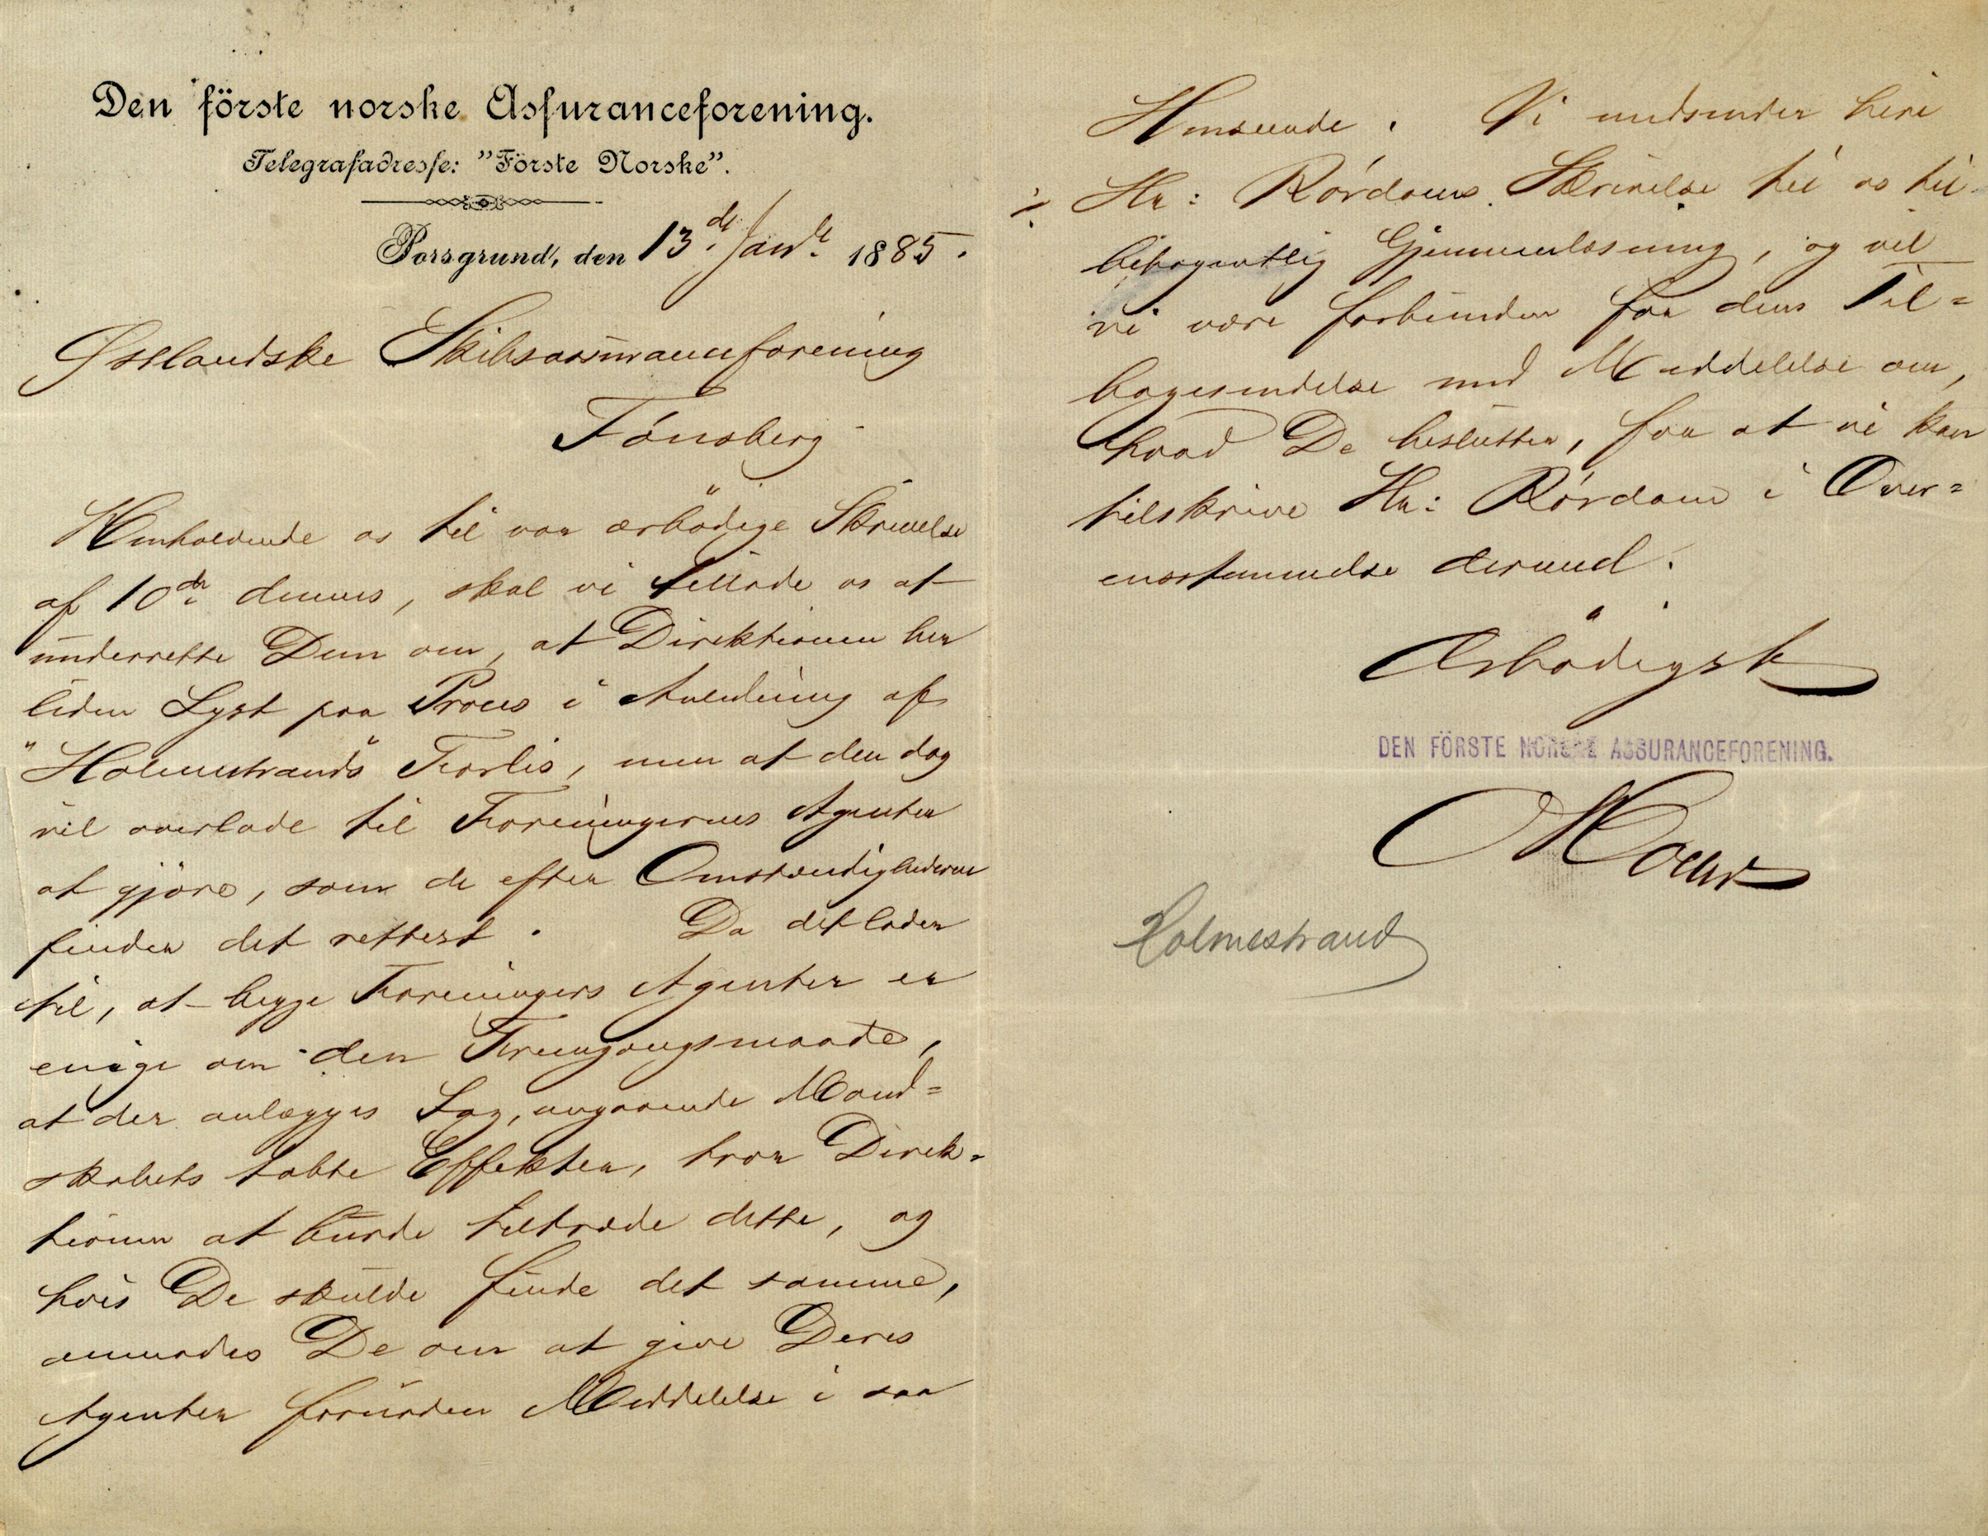 Den förste norske Assuranceforening.
Telegrafadresse: "Förste Norske".
Porsgrund, den 13de Janr. 1885.
Østlandske Skibsassuranceforening
Tønsberg
Henholdende os til vor ærbödige Skrivelse
af 10de dennes, skal vi tillade os at
underrette Dem om, at Direktionen har
liden Lyst paa Proces i Anledning af
"Holmestrands" Forlis, men at den dog
vil overlade til Foreningernes Agenter
at gjöre, som de efter Omstændighederne
finder det rettest. Da det lader
til, at begge Foreningers Agenter er
enige om den Fremgangsmaade,
at der anlægges Sag, angaaende Mand=
skabets tabte Effekter, tror Direk=
tionen at burde tiltræde dette, og
hvis De skulde finde det samme,
anmodes De om at give Deres
Agenter fornöden Meddelelse i saa
Henseende. Vi medsender hine
Hr: Rördams Skrivelse til os til
behagentlig Gjennemlæsning, og vil
vi være forbunden for dens Til=
bagesendelse med Meddelelse om,
hvad De beslutter, for at vi kan
tilskrive Hr: Rördam i Over=
ensstemmelse dermed.
Ærbödigst
DEN FÖRSTE NORSKE ASSURANCEFORENING.
Holmestrand